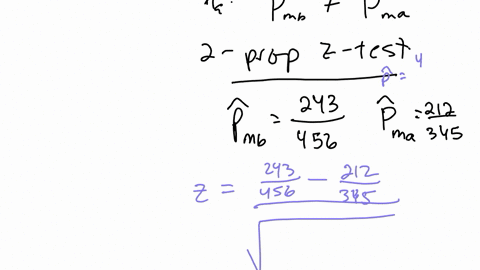 P_mb ≠ P_ma
2-prop z-test
p̂ = 4
p̂_mb = 243/456 p̂_ma = 212/345
z = (243/456 - 212/345) / √